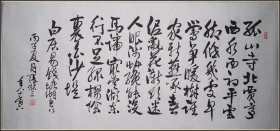 孤山寺北賈亭
西水面初平雲
脚低幾處早
鶯爭暖樹誰家
新燕啄春泥
亂花漸欲迷
人眼淺草才能沒
馬蹄最愛湖東
行不足綠楊陰
裏白沙堤
白居易錢塘湖春行
丙子夏月